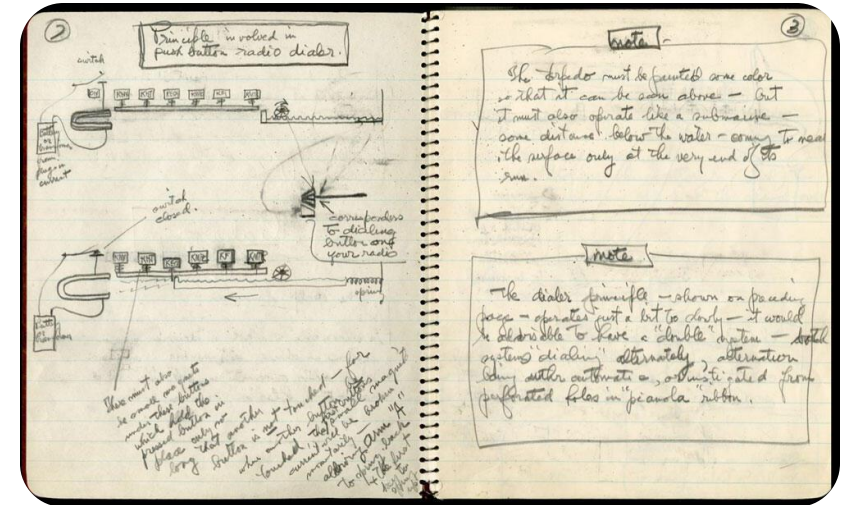 2
Principle involved in
push button radio dialer.
switch
Battery
or
from
plug in
current
switch
closed.
corresponds
to dialing
button on
your radio
spring
Battery
or
There must also
be small magnets
under these buttons
which hold the
pressed button in
place only so
long that another
button is not touched — for
when another button
touched the small magnets
current will be broken
momentarily —
allowing arm "A"
to spring back
3
note
The torpedo must be painted some color
so that it can be seen above — but
it must also operate like a submarine —
some distance below the water — coming to near
the surface only at the very end of its
run.
note
The dialer principle — shown on preceding
page — operates just a bit too slowly — it would
be advisable to have a "double" system — both
systems "dialing" alternately, alternation
being either automatic, or instigated from
perforated holes in "pianola ribbon.